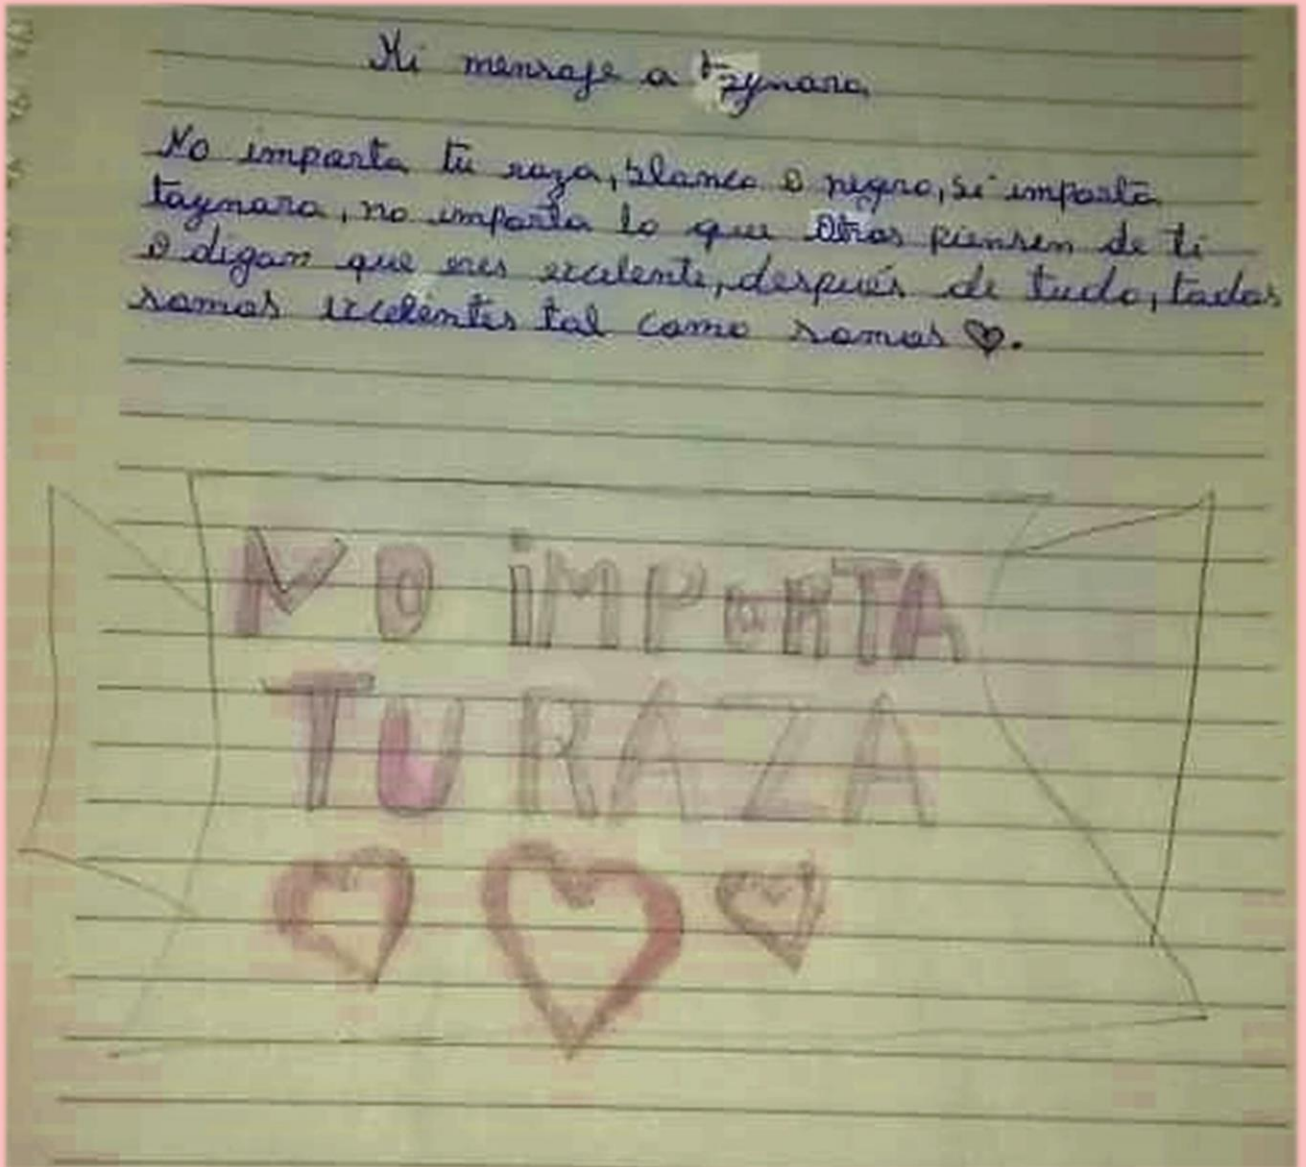 Mi mensaje a tzynara
No importa tu raza, blanco o negro, si importa
taynara, no importa lo que otros piensen de ti
o digan que eres excelente, después de tudo, todos
somos excelentes tal como somos ♡.
NO iMPORTA
TU RAZA